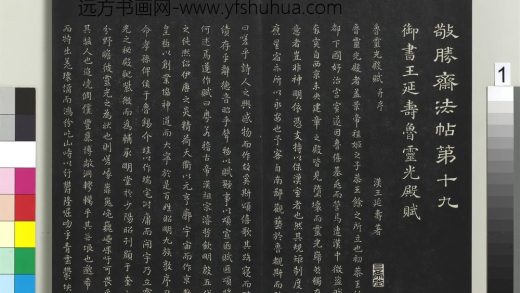 遠方书画网-www.yfshuhua.com
敬勝齋法帖第十九
御書王延壽魯靈光殿賦
魯靈光殿賦 有序
漢王延壽著
魯靈光殿者蓋景帝程姬之子恭王餘之所立也初恭王
都下國好治宮室遂因魯僖基兆而營焉遭漢中微盜賊
突自西京未央建章之殿皆見隳壞而靈光巋然獨
意者豈非神明依憑支持以保漢室者也然其規矩制度
應星宿亦所以永安也予客自南鄙觀藝於魯覩斯而
曰嗟乎詩人之興感物而作故奚斯頌僖歌其路寢而
績存乎辭德音昭乎聲物以賦顯事以頌宣匪賦匪頌
何述焉遂作賦曰粵若稽古帝漢祖宗濬哲欽明殷五代
之純熙紹伊唐之炎精荷天衢以元亨廓宇宙而作京
皇極以創業協神道而大寧於是百姓昭明九族敦序
命孝孫俾侯于魯錫介珪以作瑞宅附庸而開宇乃立靈
光之秘殿配紫微而為輔承明堂於少陽昭列顯于奎
分野瞻彼靈光之為狀也則嵯峨
吁可畏乎
其駭人也迢嶢倜儻豐麗博敞洞轇轕乎其無垠也邈希
而特出羌瑰譎而鴻紛屹山峙以紆鬱隆崛岉乎青雲鬱坱
1